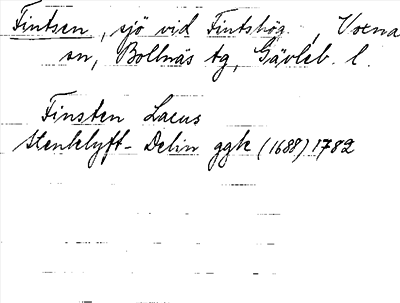 Fintsen, sjö vid Fintshög., Voxna
sn, Bollnäs tg, Gävleb. l.
Finsten Lacus
Stenklyft-Delin ggk (1688) 1782